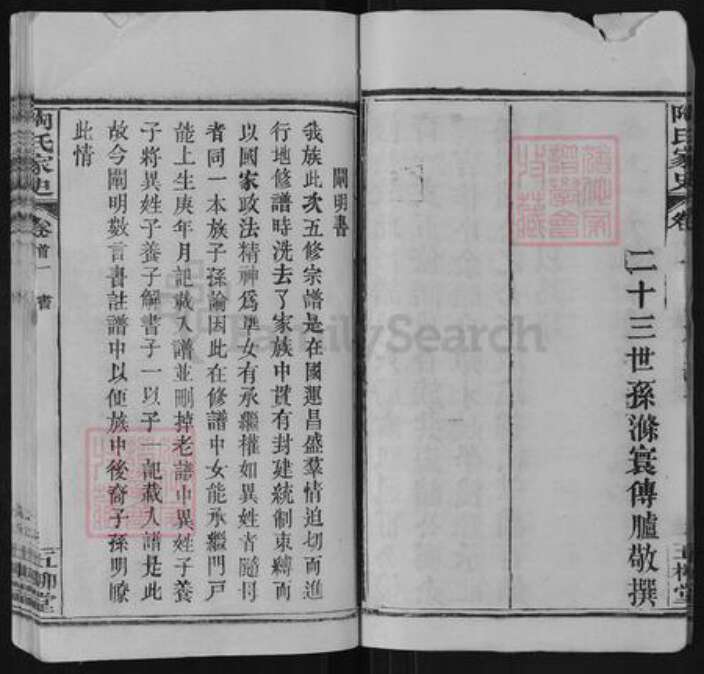 二十三世孫滌寰傳臚敬撰
闡明書
我族此次五修宗譜是在國運昌盛羣情迫切而進
行地修譜時洗去了家族中貫有封建統制束縛而
以國家政法精神爲準女有承繼權如異姓者隨母
者同一本族子孫論因此在修譜中女能承繼門戶
能上生庚年月記載入譜並刪掉老譜中異姓子養
子將異姓子養子解書子一以子一記載入譜是此
故今闡明數言書註譜中以便族中後裔子孫明瞭
此情
陶氏家史
卷首一
書
五柳堂
FamilySearch